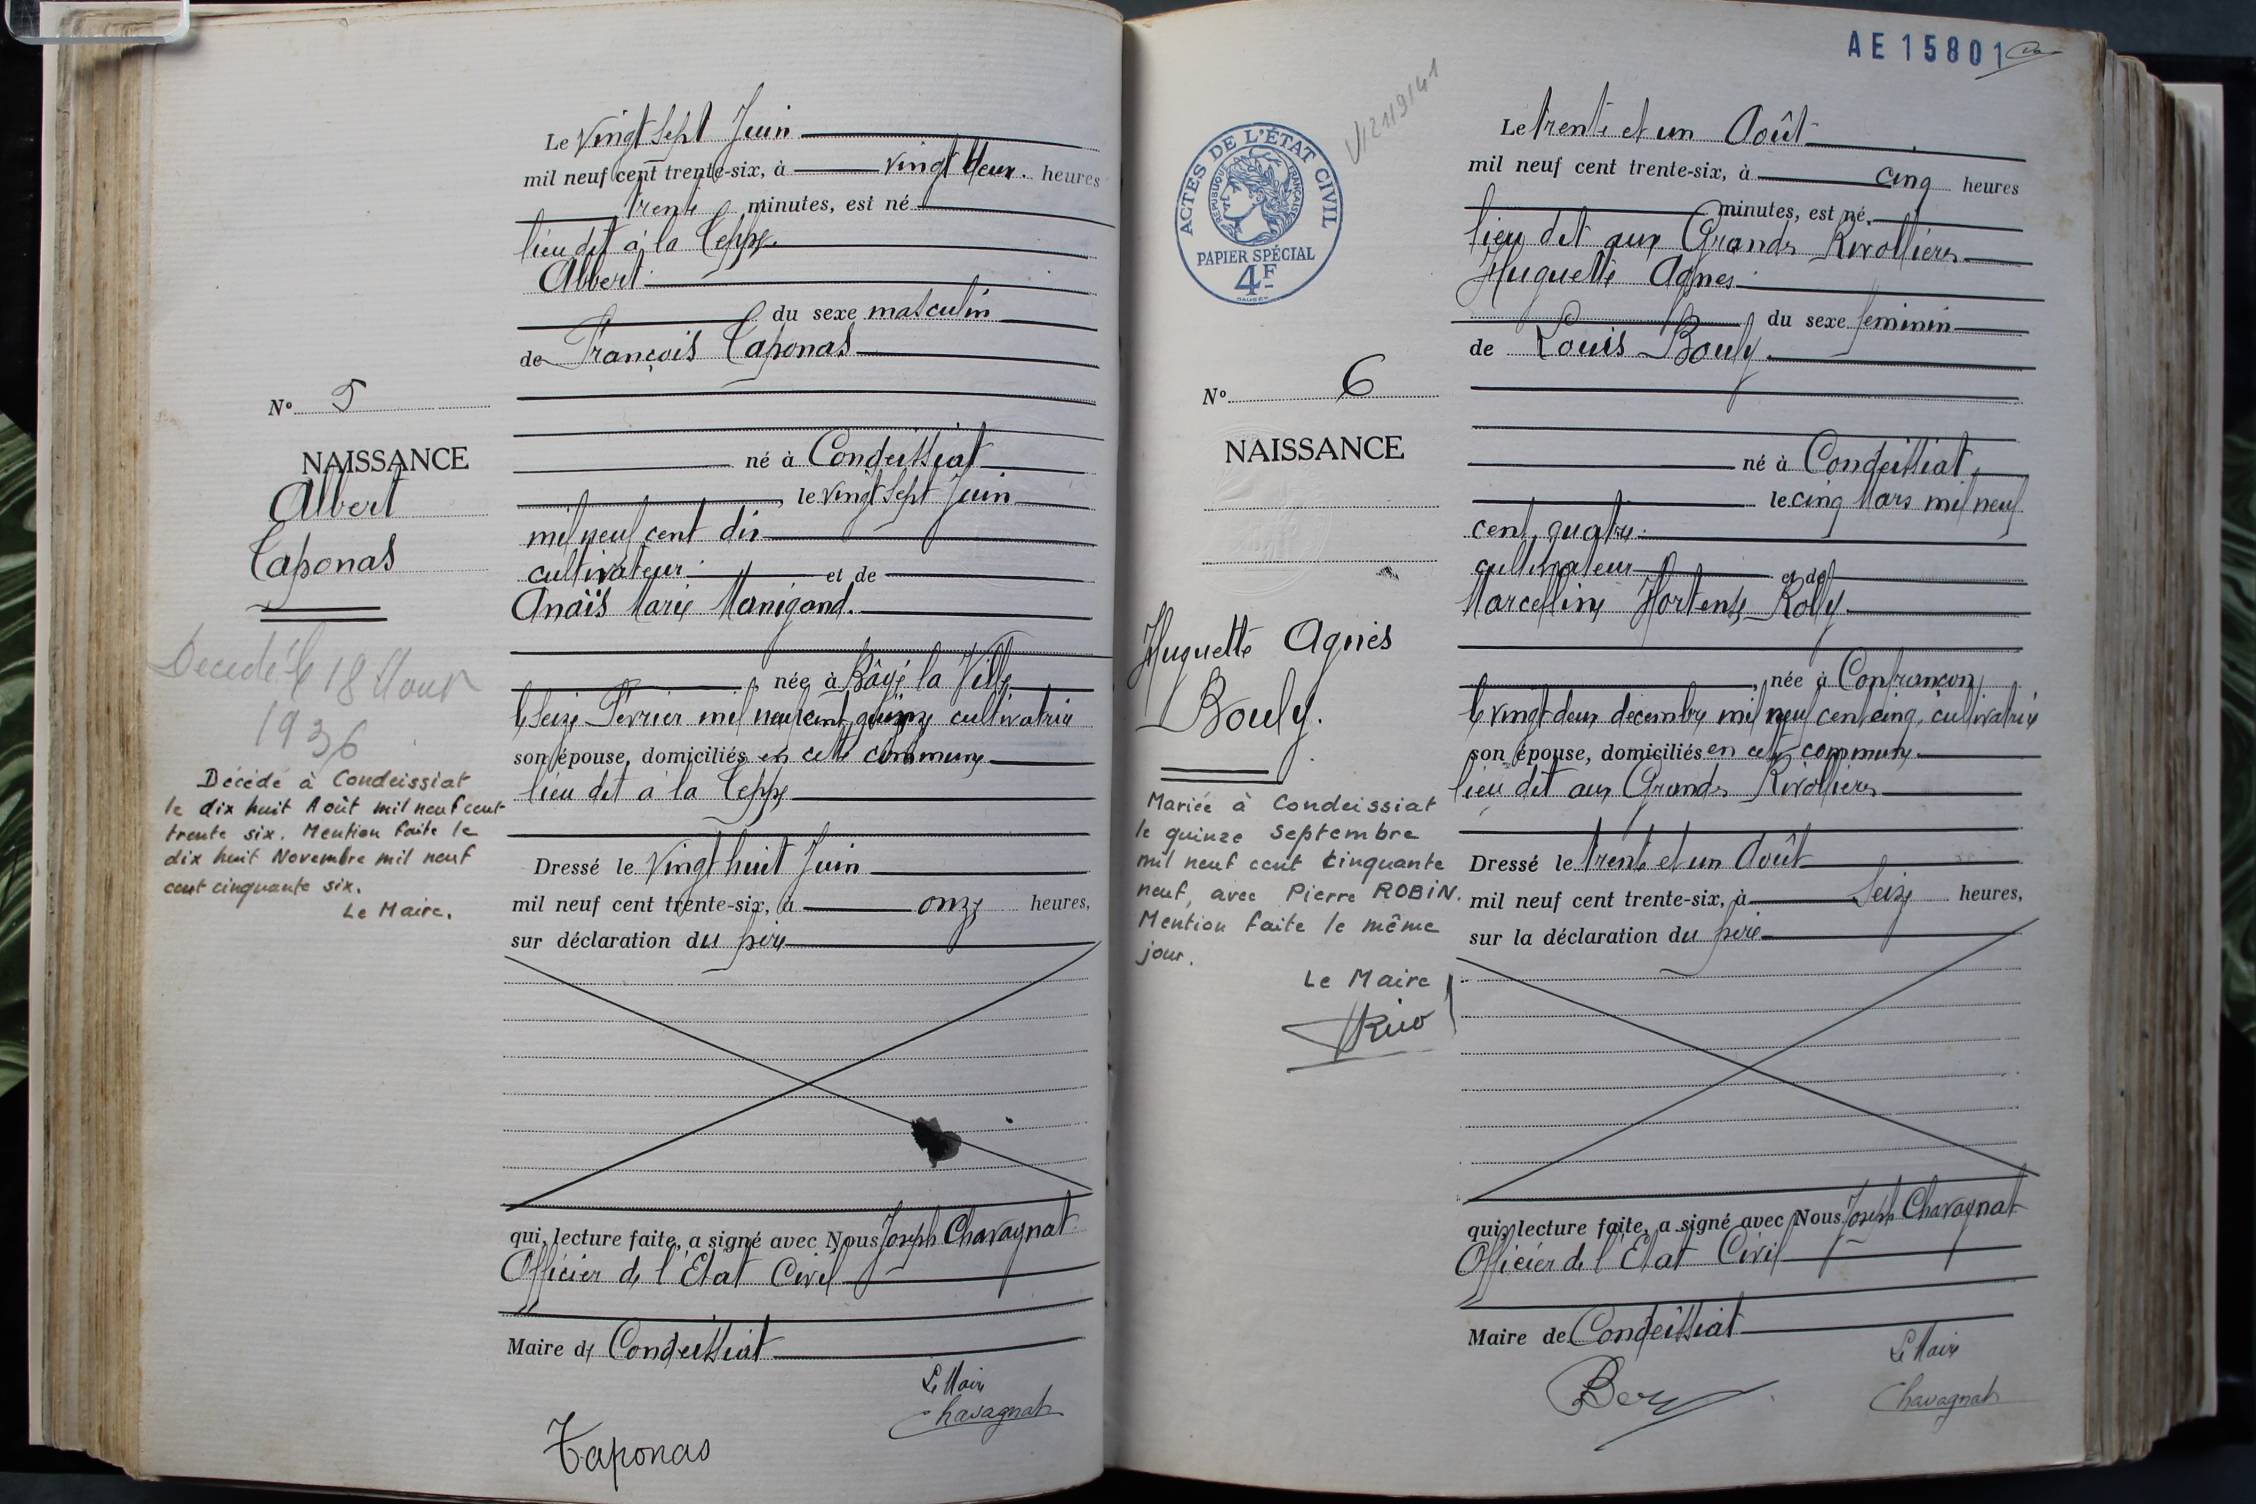 Le vingt sept Juin
mil neuf cent trente-six, à vingt deux heures
trente minutes, est né
lieu dit à la Teppe
Albert
du sexe masculin
de François Taponas
né à Condeissiat
, le vingt sept Juin
mil neuf cent dix
cultivateur et de
Anaïs Marie Manigand.
, née à Bâgé la Ville
le seize Février mil neuf cent quinze cultivatrice
son épouse, domiciliés en cette commune
lieu dit à la Teppe
Dressé le vingt huit Juin
mil neuf cent trente-six, à onze heures,
sur déclaration du père
qui, lecture faite, a signé avec Nous Joseph Chavagnat
Officier de l'Etat Civil
Maire de Condeissiat
Le Maire
Chavagnat
Taponas
No 5
NAISSANCE
Albert
Taponas
Décédé le 18 Aout
1936
Décédé à Condeissiat
le dix huit Août mil neuf cent
trente six. Mention faite le
dix huit Novembre mil neuf
cent cinquante six.
Le Maire.
AE 15801
ACTES DE L'ÉTAT CIVIL
RÉPUBLIQUE FRANÇAISE
PAPIER SPÉCIAL
4F
Le trente et un Août
mil neuf cent trente-six, à cinq heures
minutes, est né
lieu dit aux Grandes Rivollières
Huguette Agnès
du sexe féminin
de Louis Bouly
né à Condeissiat,
le cinq Mars mil neuf
cent quatre
cultivateur et de
Marcelline Hortense Rolly
, née à Confrançon
le vingt deux décembre mil neuf cent cinq, cultivatrice
son épouse, domiciliés en cette commune
lieu dit aux Grandes Rivollières
Dressé le trente et un Août
mil neuf cent trente-six, à seize heures,
sur la déclaration du père
qui, lecture faite, a signé avec Nous Joseph Chavagnat
Officier de l'Etat Civil
Maire de Condeissiat
Le Maire
Chavagnat
No 6
NAISSANCE
Huguette Agnès
Bouly.
Mariée à Condeissiat
le quinze Septembre
mil neuf cent cinquante
neuf, avec Pierre ROBIN.
Mention faite le même
jour.
Le Maire